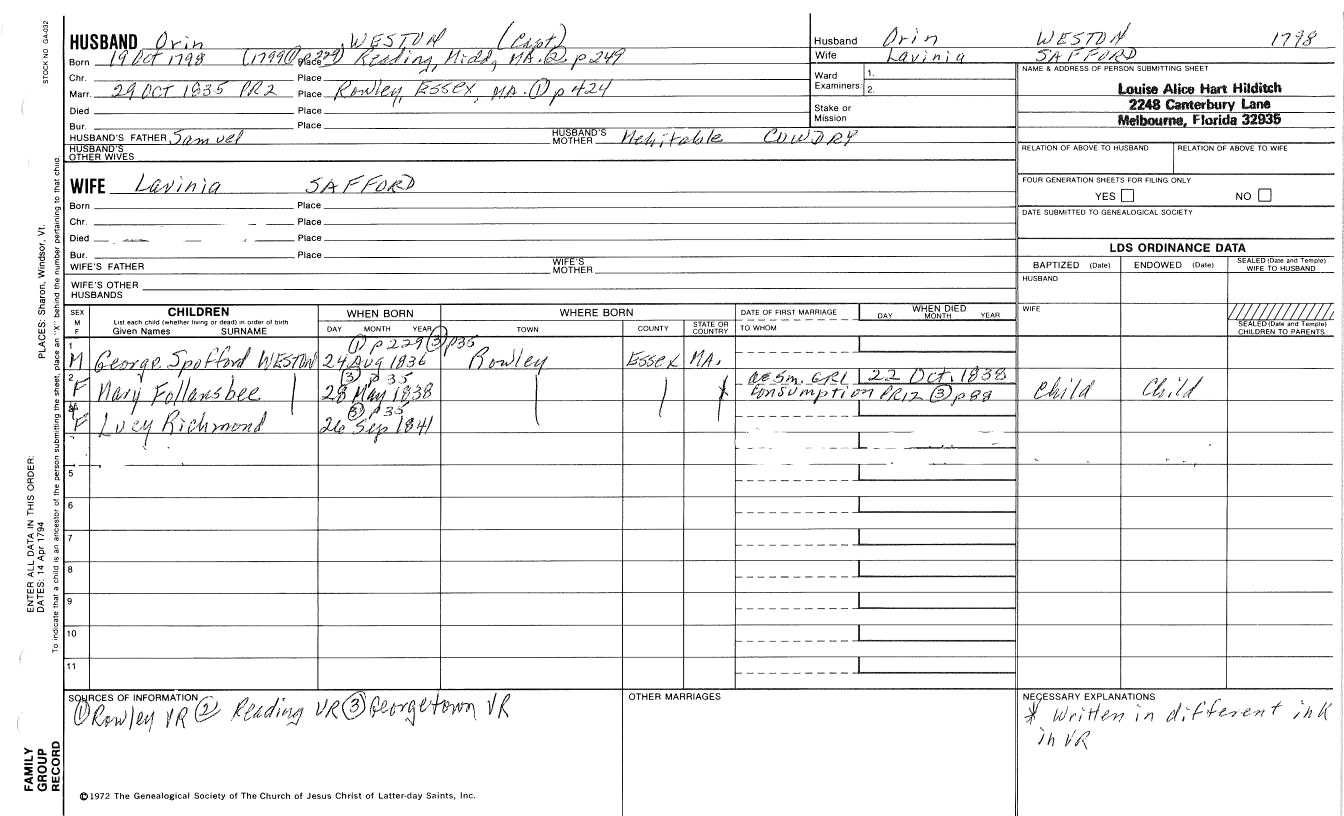 STOCK NO. GA-032
HUSBAND Orin WESTON (Capt)
Born 19 Oct 1798 (1799 ① p 229) Place Reading, Midd, MA. ② p 249
Chr. Place
Marr. 29 OCT 1835 PR2 Place Rowley, ESSEX, MA. ① p 424
Died Place
Bur. Place
HUSBAND'S FATHER Samuel HUSBAND'S MOTHER Mehitable COWDRY
HUSBAND'S OTHER WIVES
WIFE Lavinia SAFFORD
Born Place
Chr. Place
Died Place
Bur. Place
WIFE'S FATHER WIFE'S MOTHER
WIFE'S OTHER HUSBANDS
Husband Orin WESTON 1798
Wife Lavinia SAFFORD
Ward Examiners: 1. 2.
Stake or Mission
NAME & ADDRESS OF PERSON SUBMITTING SHEET
Louise Alice Hart Hilditch
2248 Canterbury Lane
Melbourne, Florida 32935
RELATION OF ABOVE TO HUSBAND RELATION OF ABOVE TO WIFE
FOUR GENERATION SHEETS FOR FILING ONLY
YES NO
DATE SUBMITTED TO GENEALOGICAL SOCIETY
LDS ORDINANCE DATA
BAPTIZED (Date) ENDOWED (Date) SEALED (Date and Temple) WIFE TO HUSBAND
HUSBAND
WIFE
SEALED (Date and Temple) CHILDREN TO PARENTS
SEX M F CHILDREN WHEN BORN WHERE BORN DATE OF FIRST MARRIAGE WHEN DIED
List each child (whether living or dead) in order of birth
Given Names SURNAME DAY MONTH YEAR TOWN COUNTY STATE OR COUNTRY TO WHOM DAY MONTH YEAR
① p 229 ③ p35
1 M George Spofford WESTON 24 Aug 1836 Rowley Essex MA.
③ p 35
2 F Mary Follansbee 28 May 1838 * ae 5m. GR1 22 Oct. 1838 Child Child
consumption PR12 ③ p 88
③ p 35
F Lucy Richmond 26 Sep 1841
5
6
7
8
9
10
11
SOURCES OF INFORMATION
① Rowley VR ② Reading VR ③ Georgetown VR
OTHER MARRIAGES
NECESSARY EXPLANATIONS
* Written in different ink
in VR
©1972 The Genealogical Society of The Church of Jesus Christ of Latter-day Saints, Inc.
FAMILY GROUP RECORD
ENTER ALL DATA IN THIS ORDER:
DATES: 14 Apr 1794
PLACES: Sharon, Windsor, Vt.
To indicate that a child is an ancestor of the person submitting the sheet, place an "X" behind the number pertaining to that child.